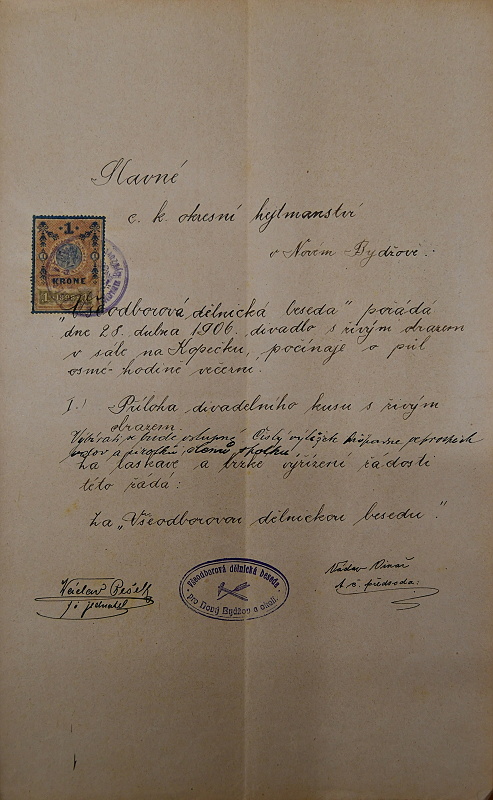 Slavné
c. k. okresní hejtmanství
v Novém Bydžově.
1
KRONE
"Všeodborová dělnická beseda" pořádá
dne 28. dubna 1906. divadlo s živým obrazem
v sále na Kopečku, počínaje o půl
osmé hodině večerní.
I.) Příloha divadelního kusu s živým
obrazem.
Vybírati se bude vstupné. Čistý výtěžek připadne ve prospěch
vdov a sirotků členů spolku
Za laskavé a brzké vyřízení žádosti
této žádá:
Za „Všeodborovou dělnickou besedu".
Václav Pešek
jednatel
Všeodborová dělnická beseda
pro Nový Bydžov a okolí.
Václav Vinař
t. č. předseda: